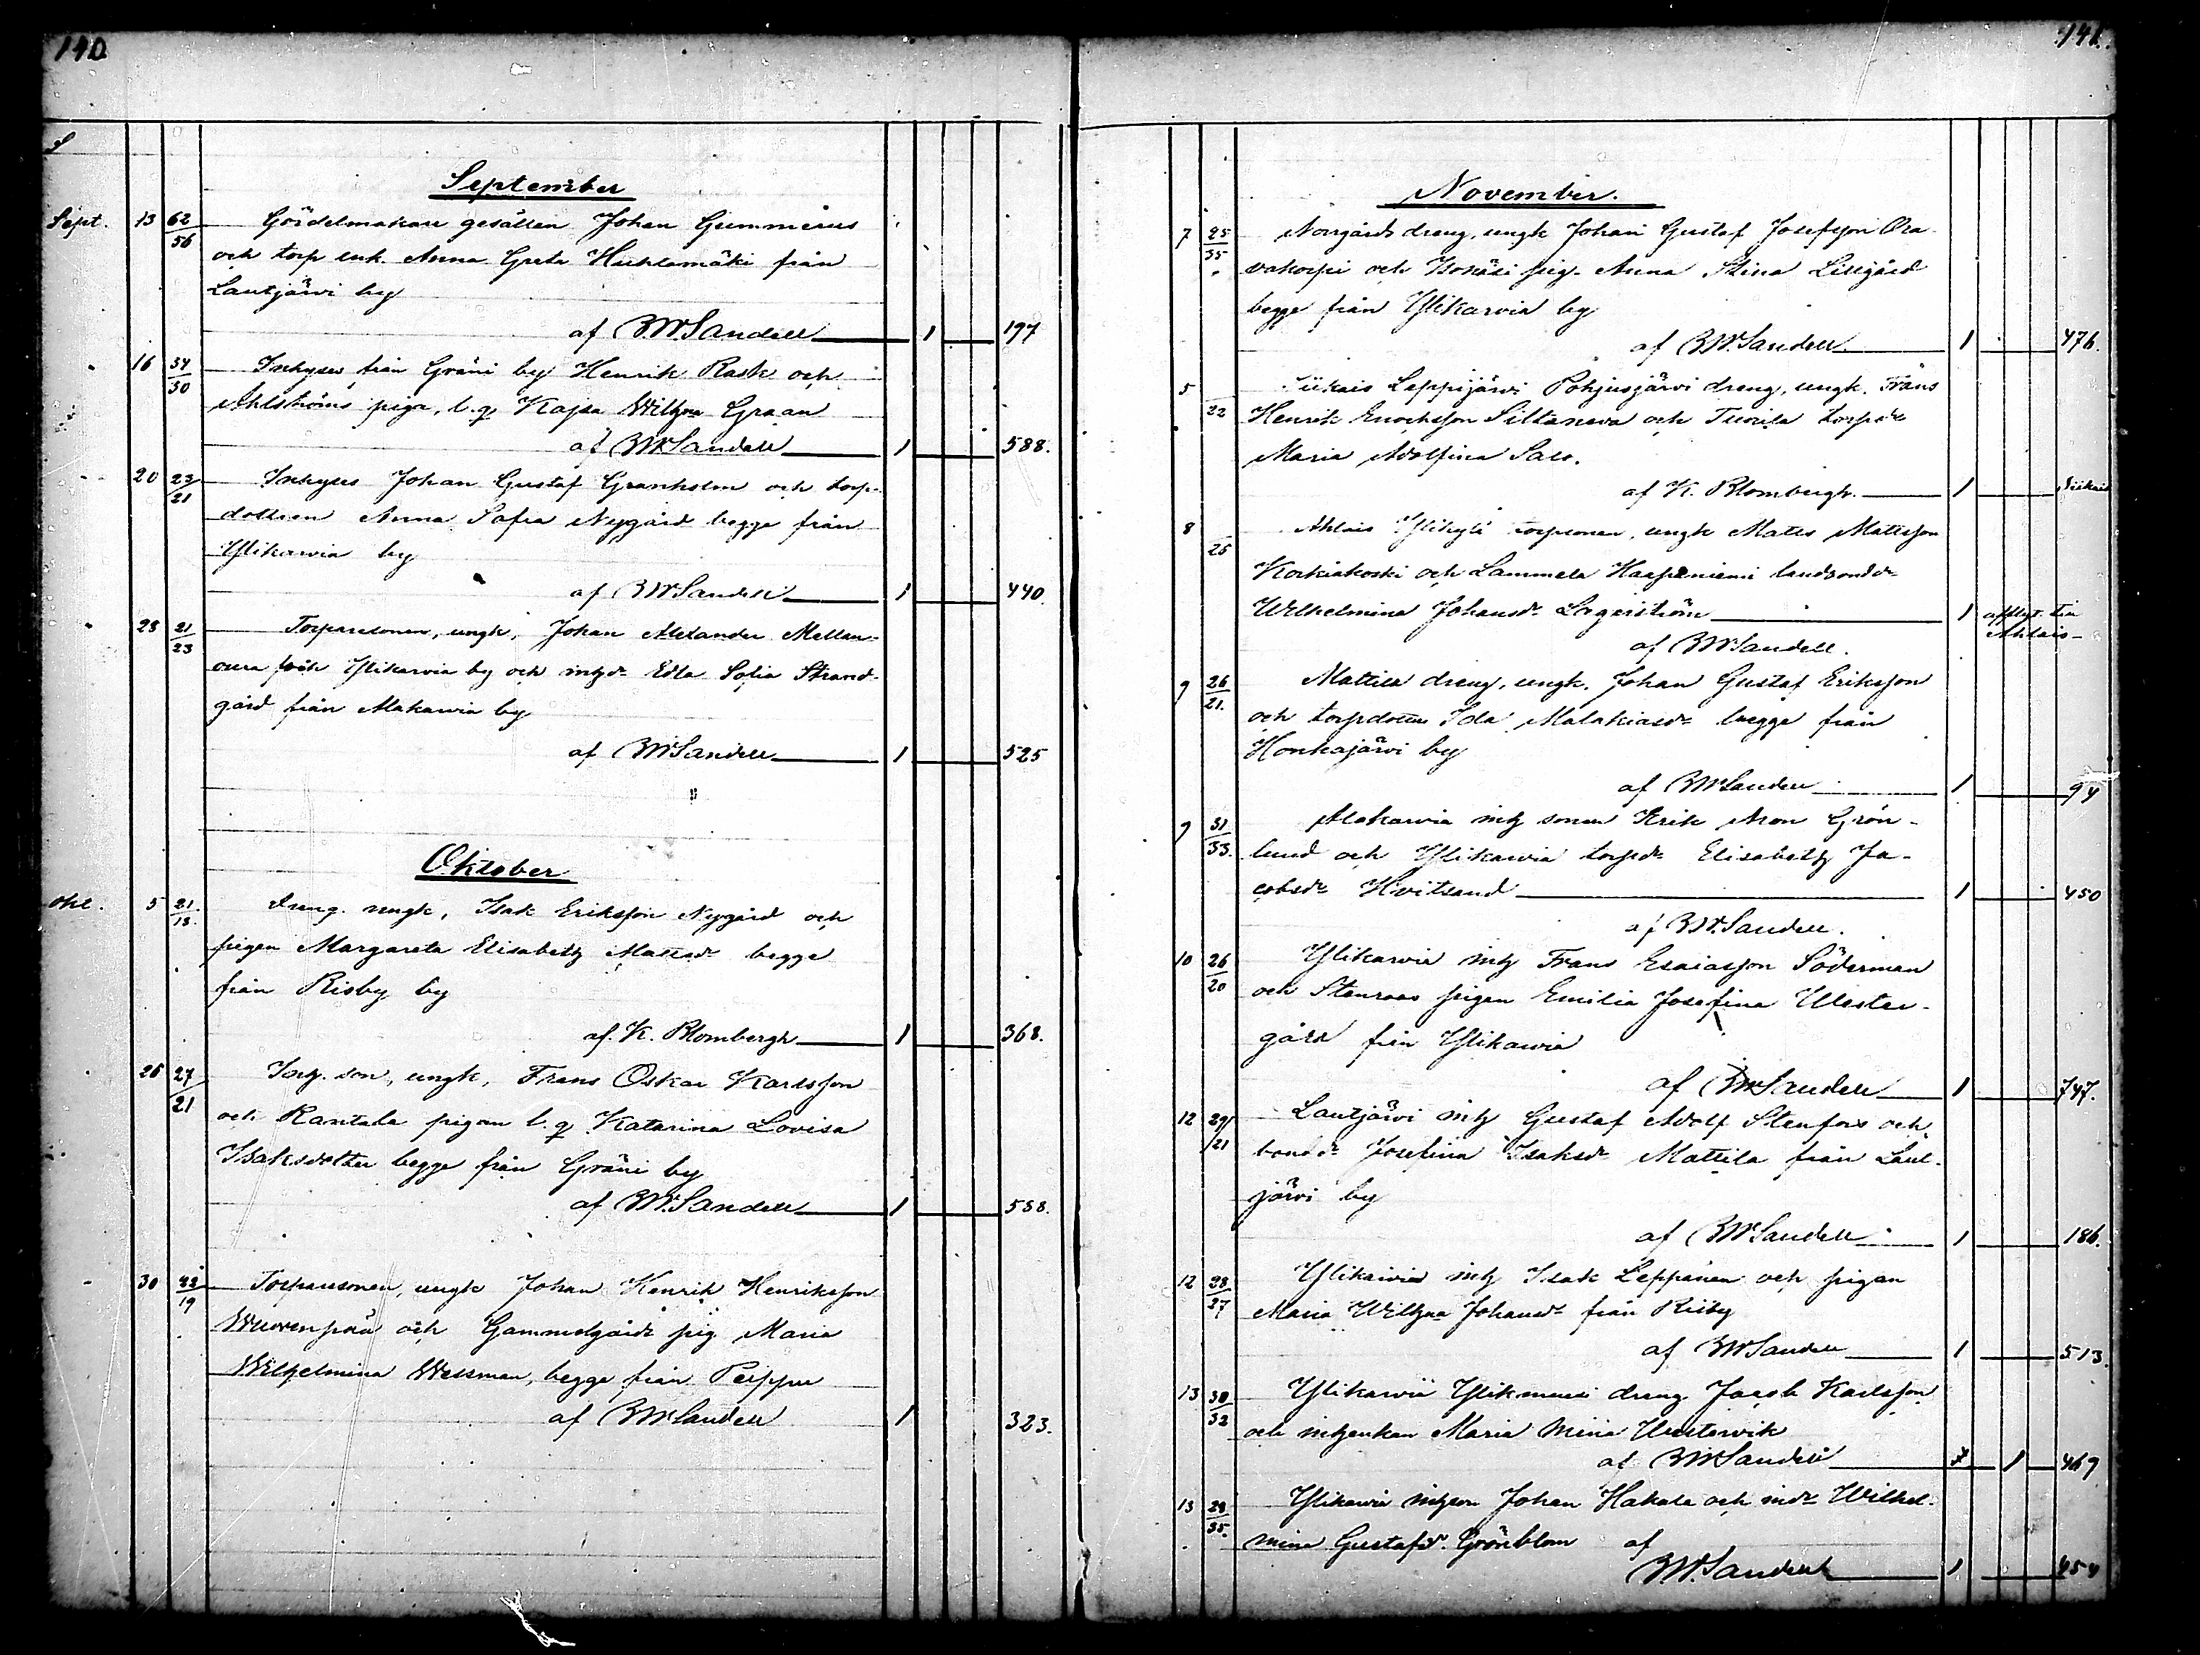 140
S
September
Sept. 13 62/56 Gördelmakare gesällen Johan Gummerus
och torp enk. Anna Greta Huhtamäki från
Lautjärvi by
af B.W.Sandell 1 197
16 34/30 Inhyses från Gräni by Henrik Rask och
Ahlströms piga, l.q. Kajsa Wilhma Graan
af BWSandell 1 588.
20 23/21 Inhyses Johan Gustaf Granholm och torp-
dottren Anna Sofia Nygård begge från
Yttikarvia by
af BWSandell 1 440.
28 21/23 Torparesonen, ungk, Johan Alexander Mellan-
oura från Yttikarvia by och inhyd. Edla Sofia Strand-
gård från Alakarvia by
af BWSandell 1 525
Oktober
Okt. 5 21/18. dreng. ungk, Isak Eriksson Nygård och
pigan Margareta Elisabeth Mattsdr begge
från Risby by
af. K. Blombergh 1 368.
26 27/21 Inhy. son, ungk, Frans Oskar Karlsson
och Rantala pigan l.q. Katarina Lovisa
Isaksdotter begge från Gräni by
af BW.Sandell 1 588.
30 /19 Torparsonen, ungk Johan Henrik Henriksson
Wuorenpää och Gammelgårds pig. Maria
Wilhelmina Wessman, begge från Peippu
af BWSandell 1 323.
141.
November.
7 25/35 Norgårds dreng, ungk Johan Gustaf Josefsson Ora-
vakorpi och pig. Anna Stina Lillgård
begge från Yttikarvia by
af BW.Sandell 1 476.
5 22 Siikais Leppijärvi Pohjusjärvi dreng, ungk. Frans
Henrik Enochsson Siltaneva och Tuorila torpdr
Maria Adolfina Salo.
af K. Blombergh. 1 Siikais
8 25 Ahlais Yttikylä torpsonen, ungk Matts Mattsson
Koskiakoski och Lammela Haapaniemi landbondr
Wilhelmina Johansdr Lagerström 1 afflyt. till
Ahlais
af BWSandell.
9 26/21. Mattila dreng, ungk. Johan Gustaf Eriksson
och torpdottren Ida Malakiasdr begge från
Honkajärvi by
af BWSandell 1 94
9 31/33. Alakarvia inhy sonen Erik Aron Grön-
lund och Yttikarvia torpdr Elisabeth Ja-
cobsdr Hvitsand 1 450
af BW.Sandell.
10 26/20 Yttikarvia inhy Frans Esaiasson Söderman
och Stenroos pigan Emilia Josefina Wester-
gård från Yttikarvia
af BWSandell 1 747.
12 29/21 Lautjärvi inhy Gustaf Adolf Stenfors och
bondd. Josefina Isaksdr Mattila från Laut-
järvi by
af BWSandell 1 186.
12 28/27 Yttikarvia inhy Isak Leppänen och pigan
Maria Wilhma Johansdr från Risby
af BWSandell 1 513.
13 30/32 Yttikarvia dreng Jacob Karlsson
och inhyenkan Maria Mina Westervik
af BWSandell 1 469
13 29/35. Yttikarvia inhyson Johan Hakala och indr Wilhel-
mina Gustafsd. Grönblom af
BW.Sandell 1 454